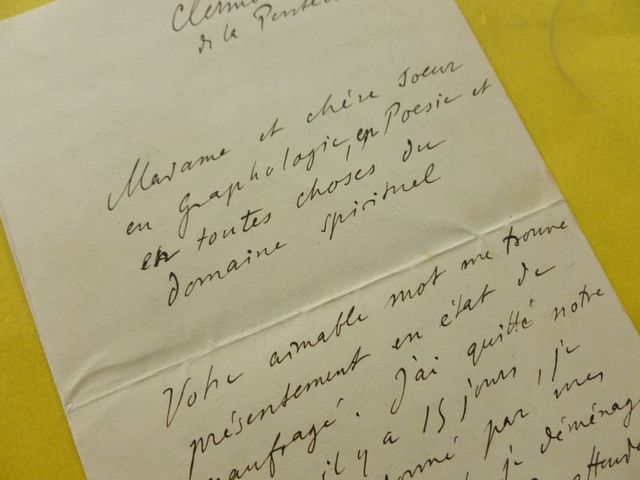 Clermo
de la Pentec
Madame et chère soeur
en graphologie, en Poesie et
en toutes choses du
domaine spirituel
Votre aimable mot me trouve
présentement en état de
naufragé. J'ai quitté notre
il y a 15 jours, je
par mes
je déménag